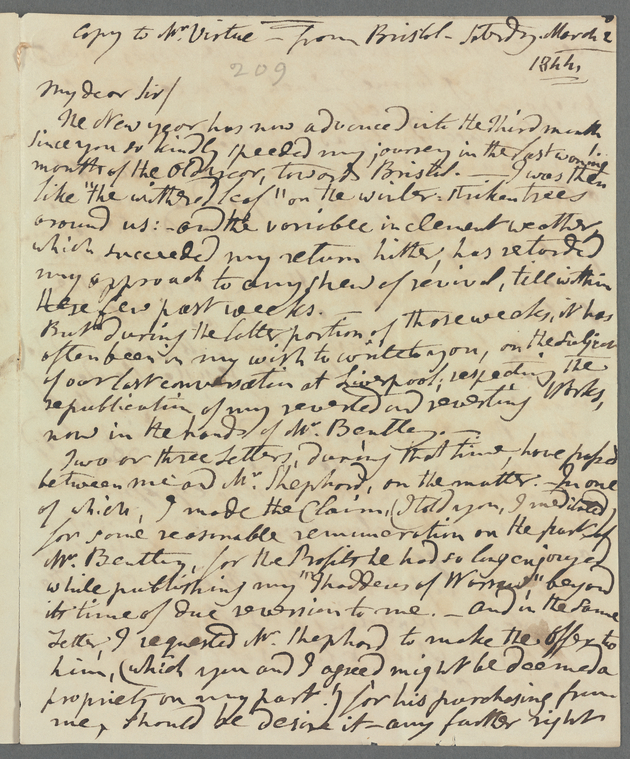 Copy to Mr. Virtue - from Bristol - Saturday March 2
1844.
209
My dear Sir/
The New year has now advanced into the third month
since you so kindly speeded my journey in the last waning
month of the old year, towards Bristol. — I was then
like "the withered leaf" on the winter-stricken trees
around us: - and the variable inclement weather,
which succeeded my return hither, has retarded
my approach to any shew of revival, till within
these few past weeks.
But during the latter portion of those weeks, it has
often been in my wish to write to you, on the subject
of our last conversation at Liverpool; respecting the
republication of my reverted and reverting Works,
now in the hands of Mr. Bentley. —
Two or three Letters, during that time, have passed
between me and Mr. Shepherd, on the matter. In one
of which, I made the Claim, (I told you, I meditated)
for some reasonable remuneration on the part of
Mr. Bentley, for the Profits he had so long enjoyed
while publishing my "Thaddeus of Warsaw" beyond
its time of due reversion to me. - and in the same
Letter, I requested Mr. Shepherd to make the offer to
him, (which you and I agreed might be deemed a
propriety on my part!) for his purchasing from
me, should he desire it any further right